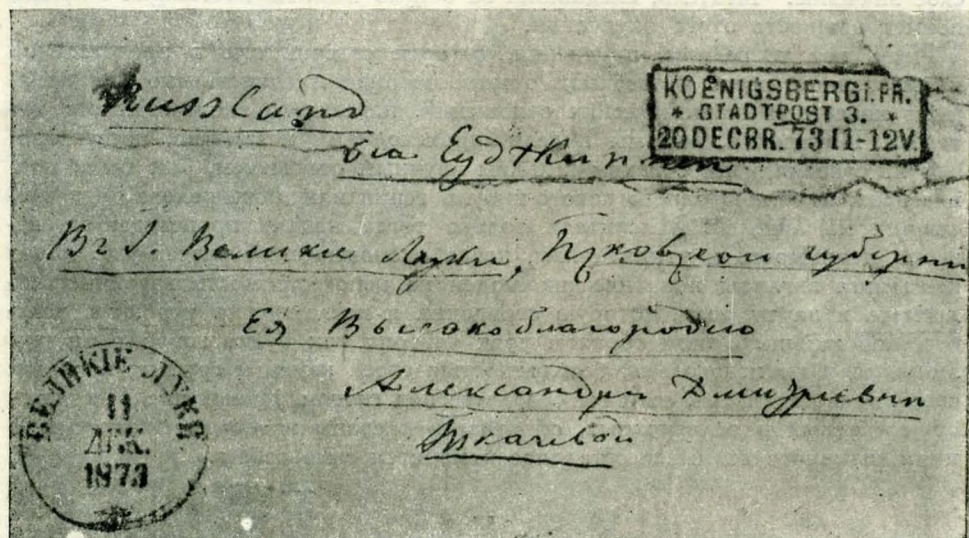 Russland
KOENIGSBERG I. PR.
* STADTPOST 3. *
20 DECBR. 73 11-12V.
via Ейдткунен
Въ г. Великие Луки, Псковской губернии
Ея Высокоблагородию
Александре Дмитриевне
Ткачевой
ВЕЛИКІЕ ЛУКИ
11
ДЕК.
1873